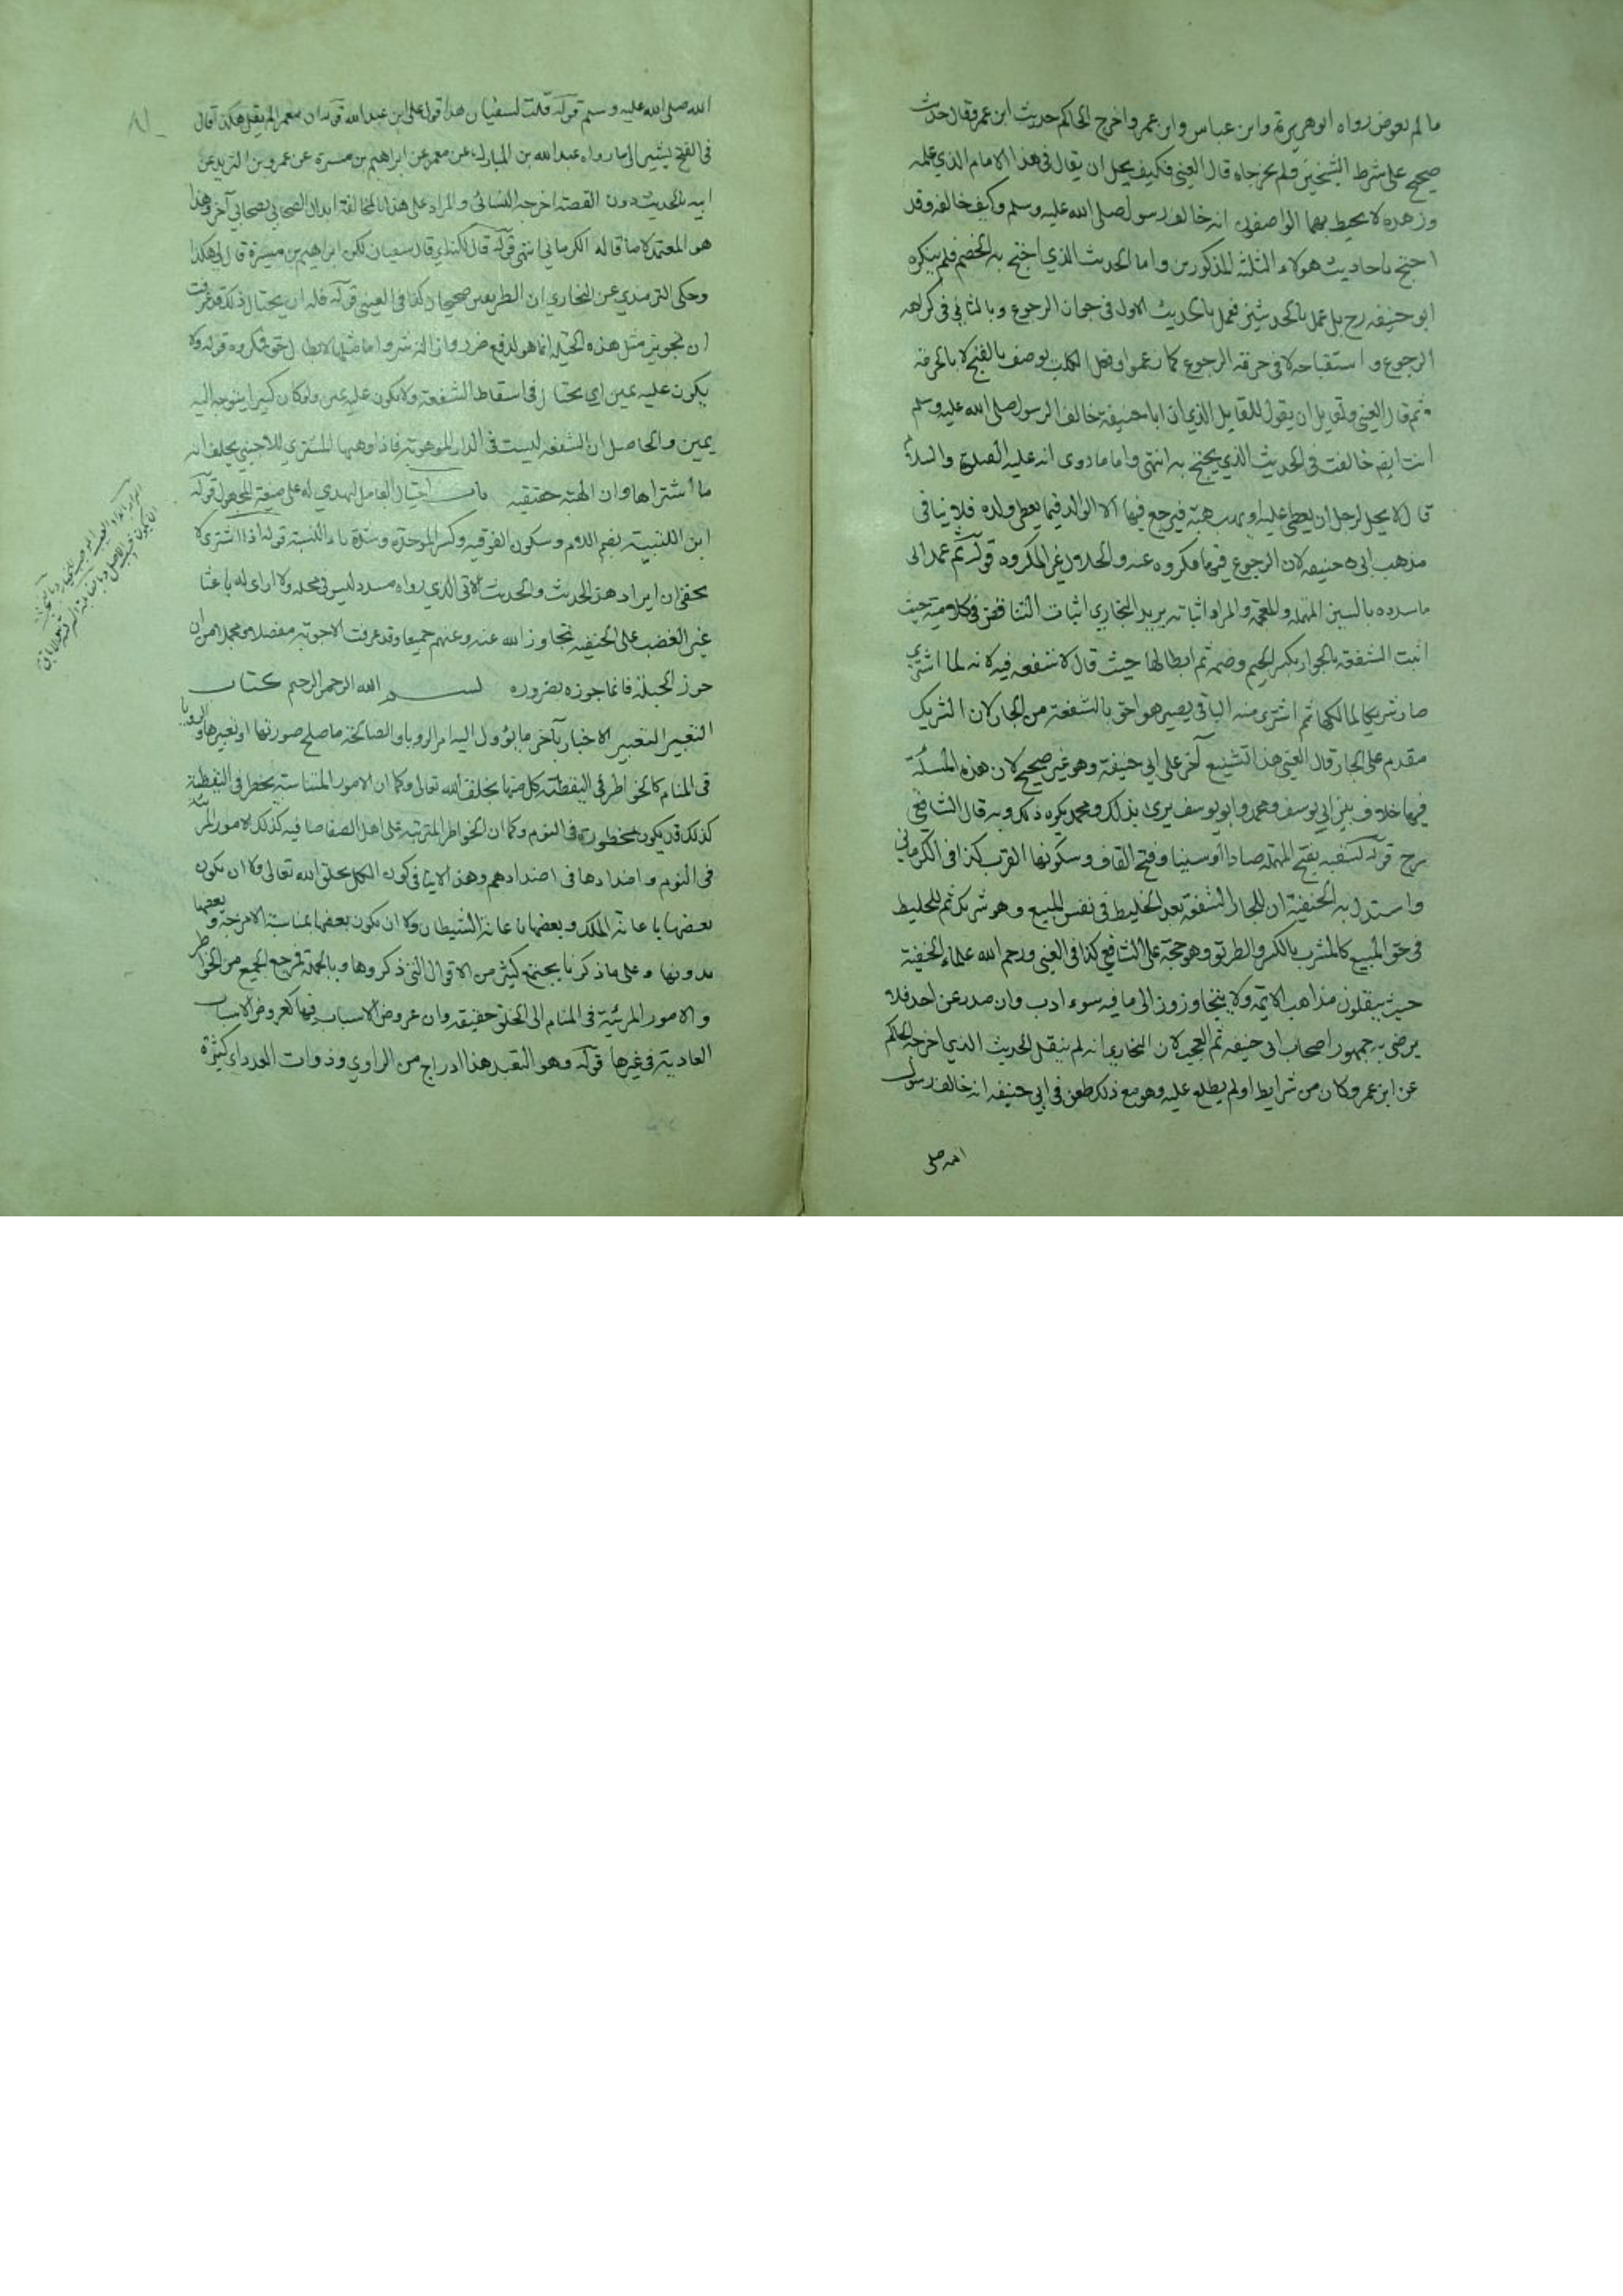 ما لم يعوض رواه ابو هريرة وابن عباس وابن عمر واخرج الحاكم حديث ابن عمر وقال حديث
صحيح على شرط الشيخين ولم يخرجاه قال العيني فكيف يحل ان يقال في هذا الامام الذي علمه
وزهده لا يحيط بهما الواصفون انه خالف رسول صلى الله عليه وسلم وكيف خالفه وقد
احتج باحاديث هولاء الثلثة المذكورين واما الحديث الذي احتج به الخصم فلم ينكره
ابو حنيفه رح بل عمل بالحديثين فعمل بالحديث الاول في جواز الرجوع وبالثاني في كراهه
الرجوع و استقباحه لا في حرمة الرجوع كما زعموا وفعل الكلب يوصف بالقبح لا بالحرمة
ثم قال العيني ولقايل ان يقول للقايل الذي ان ابا حنيفة خالف الرسول صلى الله عليه وسلم
انت ايضا خالفت في الحديث الذي يحتج به انتهى واما ما روى انه عليه الصلوة والسلام
قال لا يحل لرجل ان يعطي عطية او يهب هبة فيرجع فيها الا الوالد فيما يعطى ولده فلا ينافي
مذهب ابى حنيفه لان الرجوع فيها مكروه عنه والحلال غير المكروه قوله ثم عمد الى
ما سدده بالسين المهمله والمعجمة والمراد اثباته يريد البخاري اثبات التناقض في كلامه حيث
اثبت الشفعة بالجوار بكسر الجيم وضمه ثم ابطالها حيث قال لا شفعه فيه لانه لما اشترى
صار شريكا لمالكها ثم اشترى منه الباقي يصير هو احق بالشفعة من الجار لان الشريك
مقدم على الجار قال العيني هذا تشنيع آخر على ابي حنيفة وهو غير صحيح لان هذه المسئلة
فيها خلاف بين ابي يوسف ومحمد وابو يوسف يرى بذلك ومحمد يكره ذلك وبه قال الشافعي
رح قوله لسقبه بفتح المهملة صادا او سينا وفتح القاف وسكونها القرب كذا في الكرماني
واستدل به الحنفية ان للجار الشفعة بعد الخليط في نفس المبيع وهو شريك ثم للخليط
في حق المبيع كالشرب بالكسر والطريق وهو حجة على الشافعي كذا في العيني ورحم الله علماء الحنفية
حيث ينقلون مذاهب الائمه ولا يتجاوزون الى ما فيه سوء ادب وان صدر عن احد فلا
يرضى به جمهور اصحاب ابى حنيفه ثم العجب لان البخاري انه لم ينقل الحديث الذي اخرجه الحاكم
عن ابن عمر وكان من شرايط او لم يطلع عليه وهو مع ذلك طعن في ابي حنيفه انه خالف رسول
الله صلى
الله صلى الله عليه وسلم قوله قلت لسفيان هذا قول على ابن عبد الله قوله ان معمرا لم يقل هكذا قال
في الفتح يشير الى ما رواه عبد الله بن المبارك عن معمر عن ابراهيم بن ميسرة عن عمرو بن الشريد عن
ابيه بالحديث دون القصة اخرجه النسائي والمراد على هذا بالمخالفة ابدال الصحابي بصحابي آخر وهذا
هو المعتمد لا ما قاله الكرماني انتهى قوله قال لكنه اي قال سفيان لكن ابراهيم بن ميسرة قال لى هكذا
وحكى الترمذي عن البخاري ان الطريقين صحيحان كذا في العيني قوله فله ان يحتال ذلك قد عرفت
ان تجويز مثل هذه الحيلة انما هو لدفع ضرر واما لابطال حق فمكروه قوله ولا
يكون عليه يمين اي يحتال في اسقاط الشفعة ولا يكون عليه يمين ولو كان كبيرا يتوجه اليه
يمين والحاصل ان الشفعه ليست في الدار الموهوبة فاذا وهبها المشتري للاجنبي يحلف انه
ما اشتراها وان الهبة حقيقيه باب احتيال العامل ليهدي له على صيغة المجهول قوله
ابن اللتبية بضم اللام وسكون الفوقيه وكسر الموحدة وشدة ياء النسبة قوله اذا اشترى لا
يخفى ان ايراد هذا الحديث والحديث الاتى الذي رواه مسدد ليس في محله ولا ارى له باعثا
غير الغضب على الحنيفة تجاوز الله عنه وعنهم جميعا وقد عرفت الاجوبة مفصلا ومجملا من ان
جوز الحيلة فانما جوزه بضروره بسم الله الرحمن الرحيم كتاب
التعبير التعبير الاخبار بآخر ما يؤول اليه امر الرويا والصالحة ما صلح صورتها او تعبيرها والرويا
في المنام كالخواطر في اليقظة كل منها بخلق الله تعالى وكما ان الامور المتناسبة يخطر في اليقظة
كذلك قد يكون مخطورة في النوم وكما ان الخواطر المترتبة على اهل الصفا صافيه كذلك الامور المرئية
في النوم واضدادها في اضدادهم وهذا لا ينافي كون الكل بخلق الله تعالى ولا ان يكون
بعضها باعانة الملك وبعضها باعانة الشيطان ولا ان يكون بعضها بمناسبة الامزجة وبعضها
بدونها وعلى ما ذكرنا يجتمع كثير من الاقوال التى ذكروها وبالجملة فمرجع الجميع من الخواطر
والامور المرئية في المنام الى الخلق حقيقة وان عروض الاسباب فيها كعروض الاسباب
العادية في غيرها قوله وهو التعبد هذا ادراج من الراوي وذوات العدد اي كثيرة